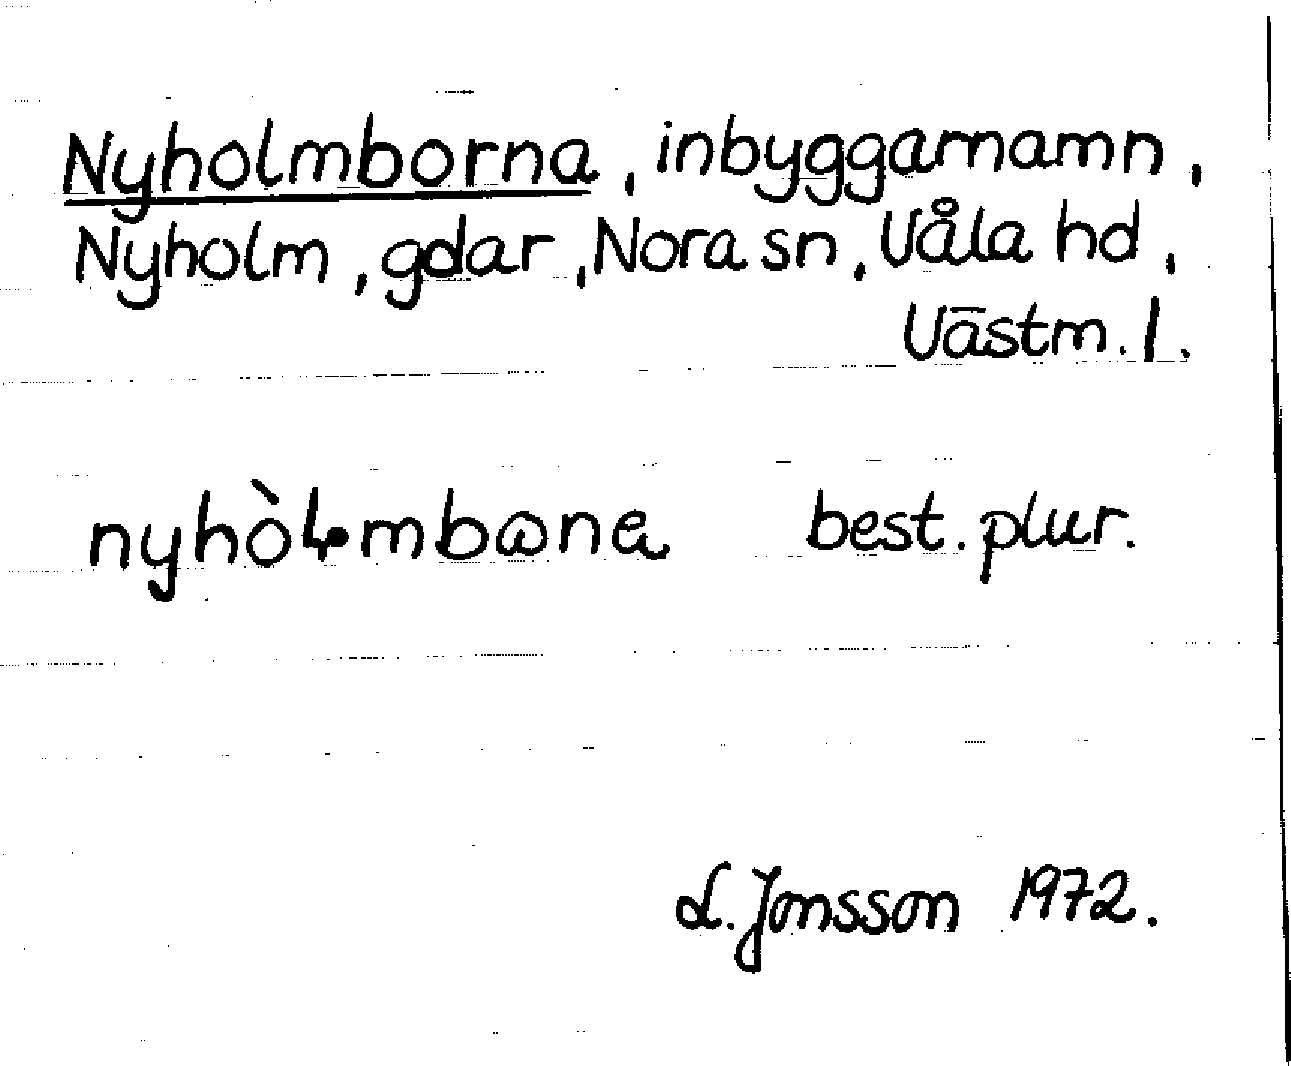 Nyholmborna, inbyggarnamn,
Nyholm, gdar, Nora sn, Våla hd,
Västm. l.
best. plur.
L. Jonsson 1972.